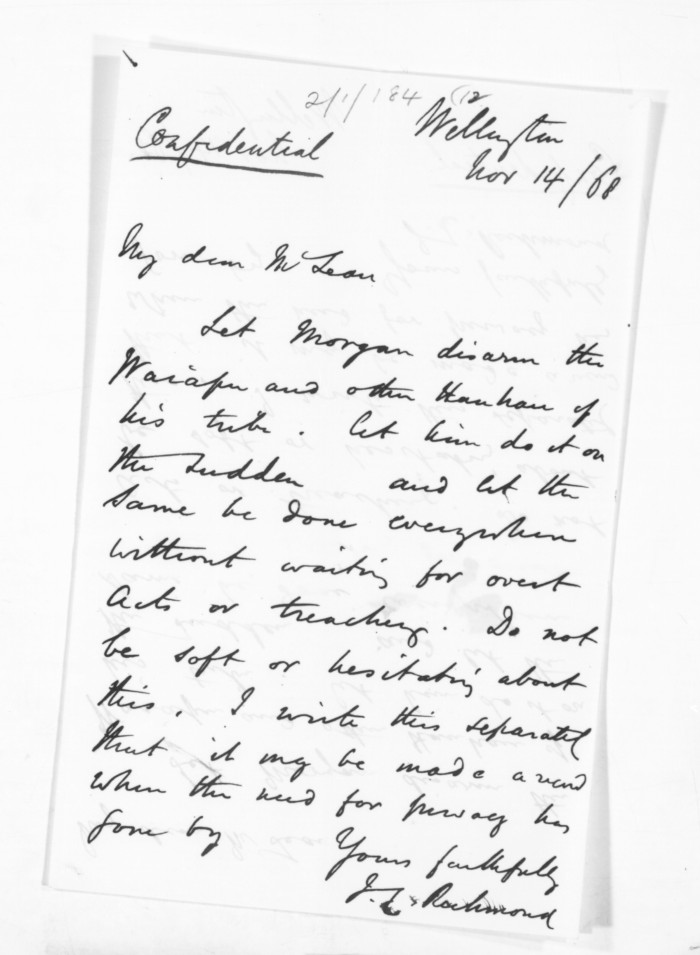 2/1/184 (12
Confidential
Wellington
Nov 14/68
My dear McLean
Let Morgan disarm the
Waiapu and other Hauhau of
his tribe. Let him do it on
the sudden and let the
same be done everywhere
without waiting for overt
acts or treachery. Do not
be soft or hesitating about
this. I write this separately
that it may be made
when the need for privacy has
gone by
Yours faithfully
J.C. Richmond